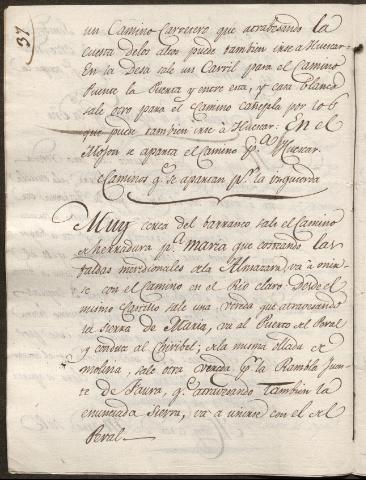 37
un Camino Carretero que atrabesando la
cuesta delos altos puede tambien irse a Huescar=
En la desa sale un Carril para el Camino
Puente la Puerta y entre esta, y casa blanca
sale otro para el Camino por lo
que puede tambien irse à Huescar: En el
Mojon se aparta el Camino pa. Huescar.
Caminos q.e se apartan p.r la izquierda
Muy cerca del barranco sale el Camino
de herradura pa. Maria que costeando las
faldas meridionales de la Almazara, và à unir-
se con el Camino en el Rio claro: Desde el
mismo Cortijo sale una vereda que atravesando
la Sierra de Maria, va al Puerto del Peral
y conduce al Chiribel; de la misma ollada de
molina, sale otra vereda p.r la Rambla Jun-
te de Taura, q.e atravesando tambien la
enunciada Sierra, va a unirse con el del
Peral.